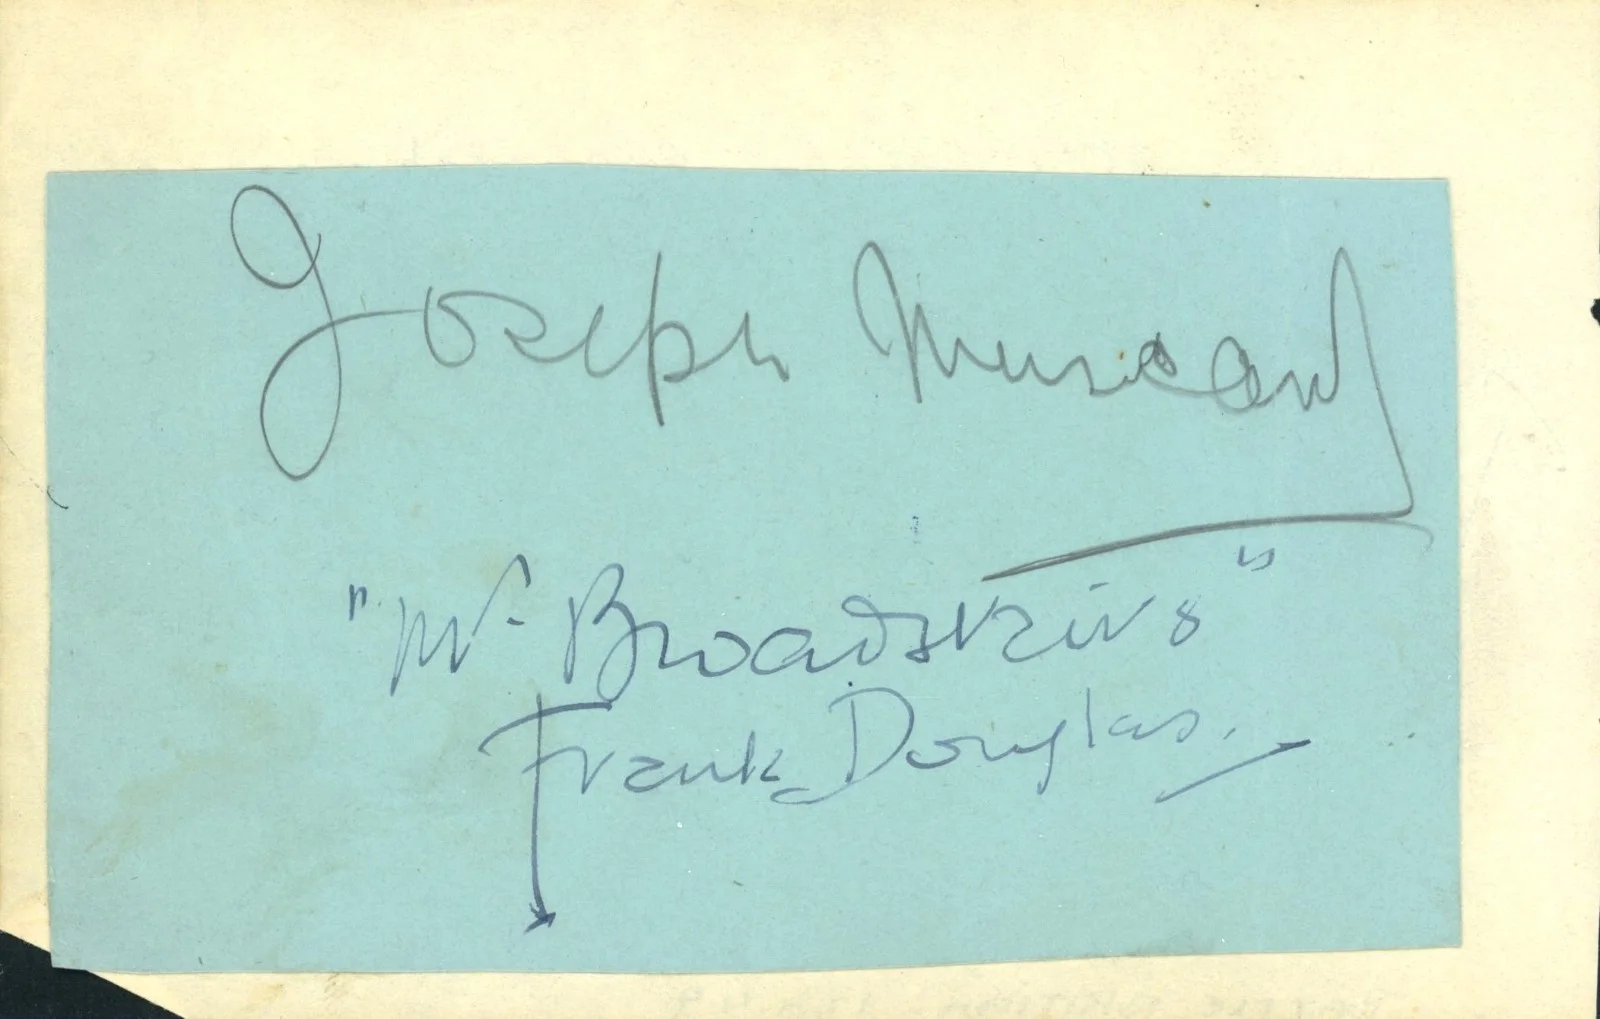 Joseph Muscant
"Mr Broadskins"
Frank Douglas.